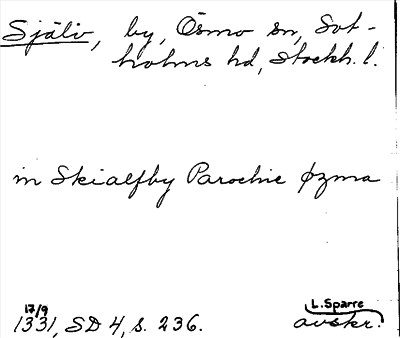 Själv, by, Ösmo sn, Sot-
holms hd, Stockh. l.
in Skialfby Parochie øzma
17/9 L. Sparre
1331, SD 4, s. 236. avskr.